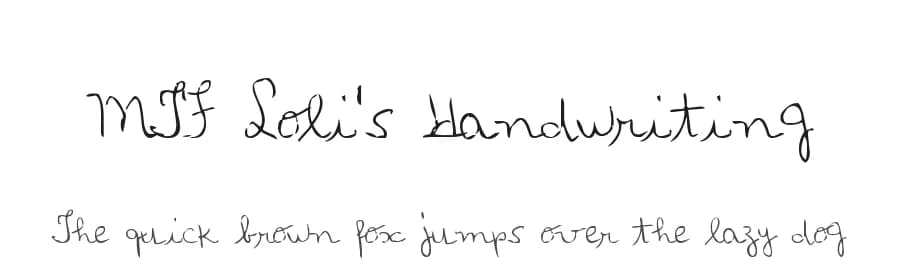 MJF Loli's Handwriting
The quick brown fox jumps over the lazy dog